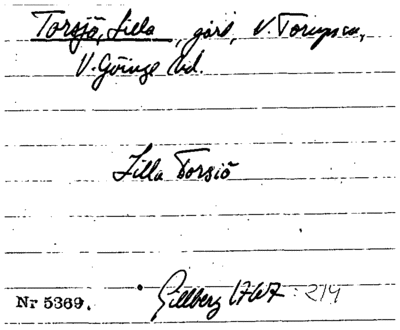 Torsjö, Lilla, gård, V. Torups sn,
V. Göinge hd.
Lilla Torsiö
Gillberg 1767 : 214
Nr 5369.